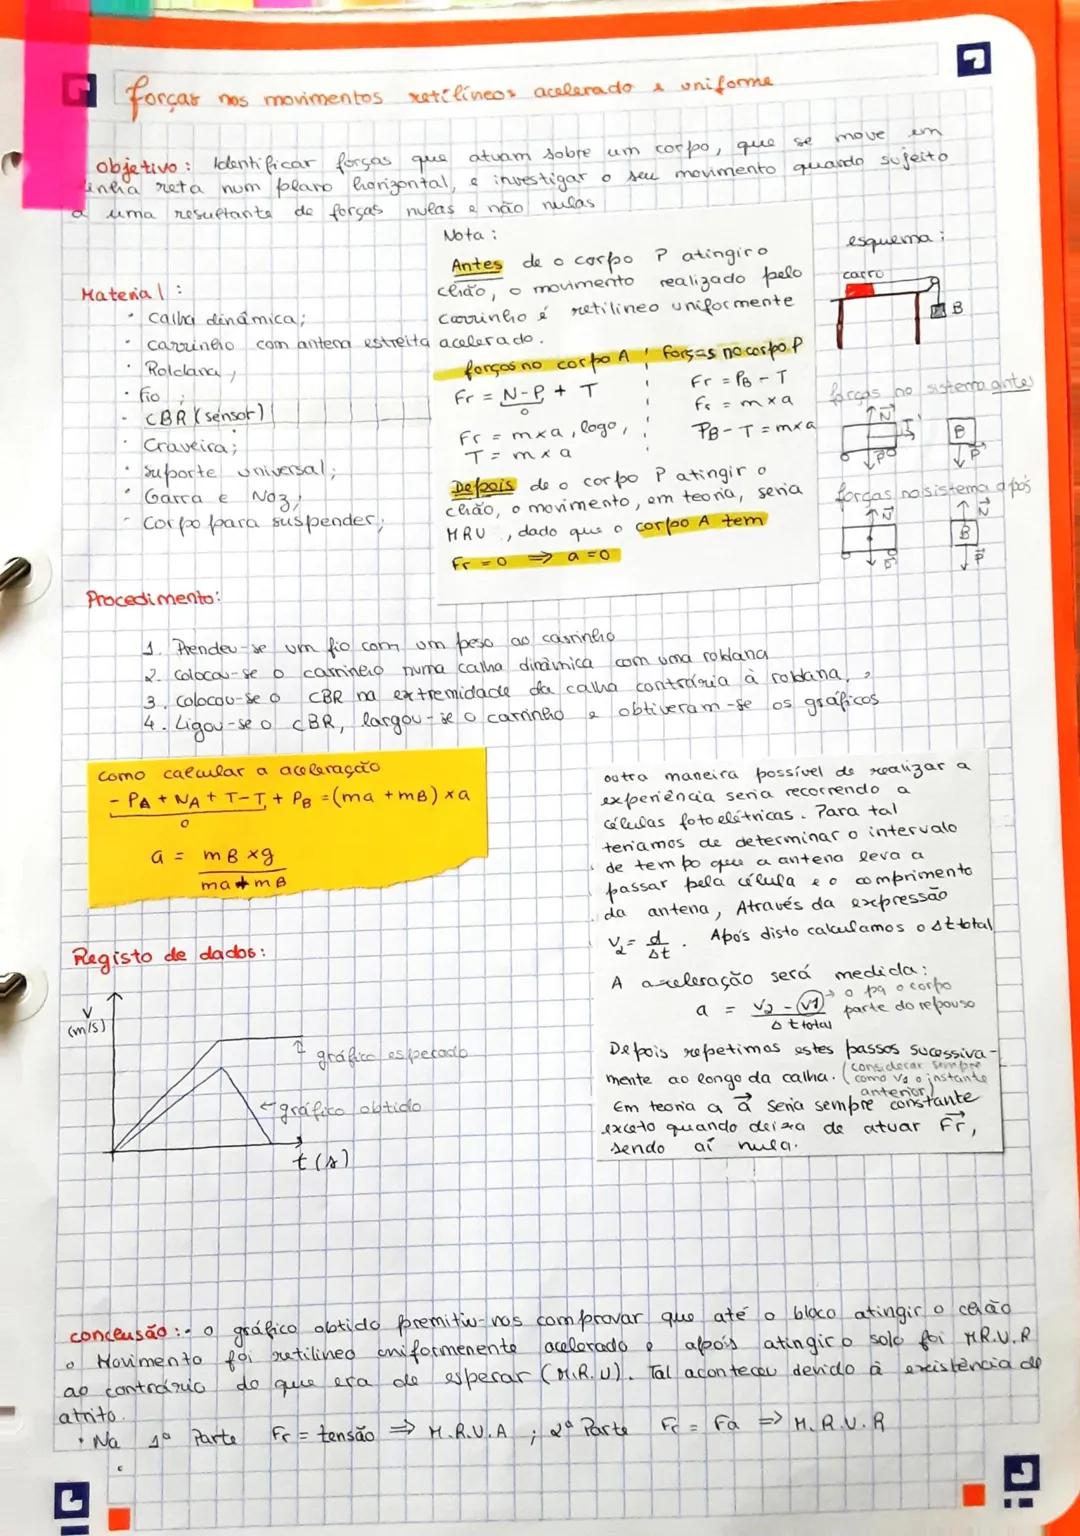 forças nos movimentos retilíneos acelerado e uniforme
objetivo: Identificar forças que atuam sobre um corpo, que se move em
linha reta num plano horizontal, e investigar o seu movimento quando sujeito
a uma resultante de forças nulas e não nulas
Material:
• Calha dinâmica;
• carrinho com antena estreita
• Roldana,
• fio;
• CBR (sensor)
• Craveira;
• suporte universal;
• Garra e Noz;
• Corpo para suspender;
Nota:
Antes de o corpo P atingir o
chão, o movimento realizado pelo
carrinho é retilineo uniformente
acelerado.
forças no corpo A
Fr = N-P + T
0
Fr = mxa, logo,
T = mxa
Forças no corpo P
Fr = PB - T
Fr = mxa
PB - T = mxa
Depois de o corpo P atingir o
chão, o movimento, em teoria, seria
MRU, dado que o corpo A tem
Fr = 0 ⇒ a = 0
esquema:
carro
B
forças no sistema antes
N
T
P
B
P
forças no sistema após
N
P
N
B
P
Procedimento:
1. Prendeu-se um fio com um peso ao carrinho
2. colocou-se o carrinho numa calha dinâmica com uma roldana
3. colocou-se o CBR na extremidade da calha contrária à roldana,
4. Ligou-se o CBR, largou-se o carrinho e obtiveram-se os gráficos
como calcular a aceleração
- PA + NA + T - T + PB = (ma + mB) x a
0
a = mB x g
ma + mB
outra maneira possível de realizar a
experiência seria recorrendo a
células fotoelétricas. Para tal
teriamos de determinar o intervalo
de tempo que a antena leva a
passar pela célula e o comprimento
da antena, Através da expressão
V2 = d . Após disto calculamos o Δt total
Δt
A aceleração será medida:
a = V2 - V1 → 0 pq o corpo
Δt total parte do repouso
Depois repetimos estes passos sucessiva-
mente ao longo da calha. (considerar sempre
como V1 o instante
anterior)
Em teoria a a⃗ seria sempre constante
exceto quando deixa de atuar Fr⃗,
sendo aí nula.
Registo de dados:
v
(m/s)
gráfico esperado
gráfico obtido
t (s)
conclusão: - o gráfico obtido premitiu-nos comprovar que até o bloco atingir o chão
o Movimento foi retilineo uniformenente acelerado e após atingir o solo foi M.R.U.R
ao contrário do que era de esperar (M.R.U). Tal aconteceu devido à existência de
atrito.
• Na 1ª Parte Fr = tensão ⇒ M.R.U.A ; 2ª Parte Fr = Fa ⇒ M.R.U.R